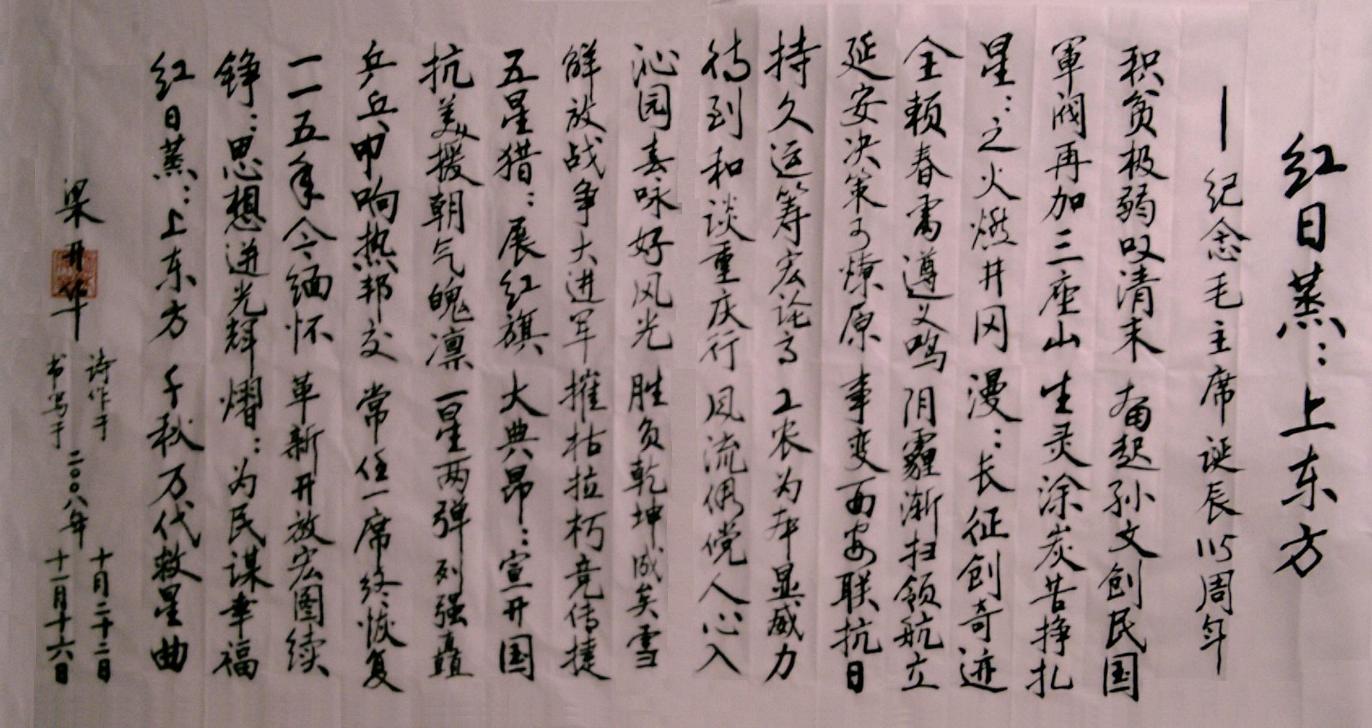 红日蒸:上东方
—纪念毛主席诞辰115周年
积贫极弱叹清末 奋起孙文创民国
军阀再加三座山 生灵涂炭苦挣扎
星:之火燃井冈 漫:长征创奇迹
全赖春雷遵义鸣 阴霾渐扫领航立
延安决策可燎原 事变西安联抗日
持久运筹宏论高 工农为本显威力
待到和谈重庆行 风流倜傥人心入
沁园春咏好风光 胜负乾坤成矣雪
解放战争大进军 摧枯拉朽竞传捷
五星猎:展红旗 大典昂:宣开国
抗美援朝气魄凛 一星两弹列强矗
乒乓甲响热邦交 常任一席终恢复
一一五年今缅怀 革新开放宏图续
铮:思想迸光辉 熠:为民谋幸福
红日蒸:上东方 千秋万代救星曲
梁开华
诗作于 二〇〇八年 十月二十二日
书写于 十一月十六日